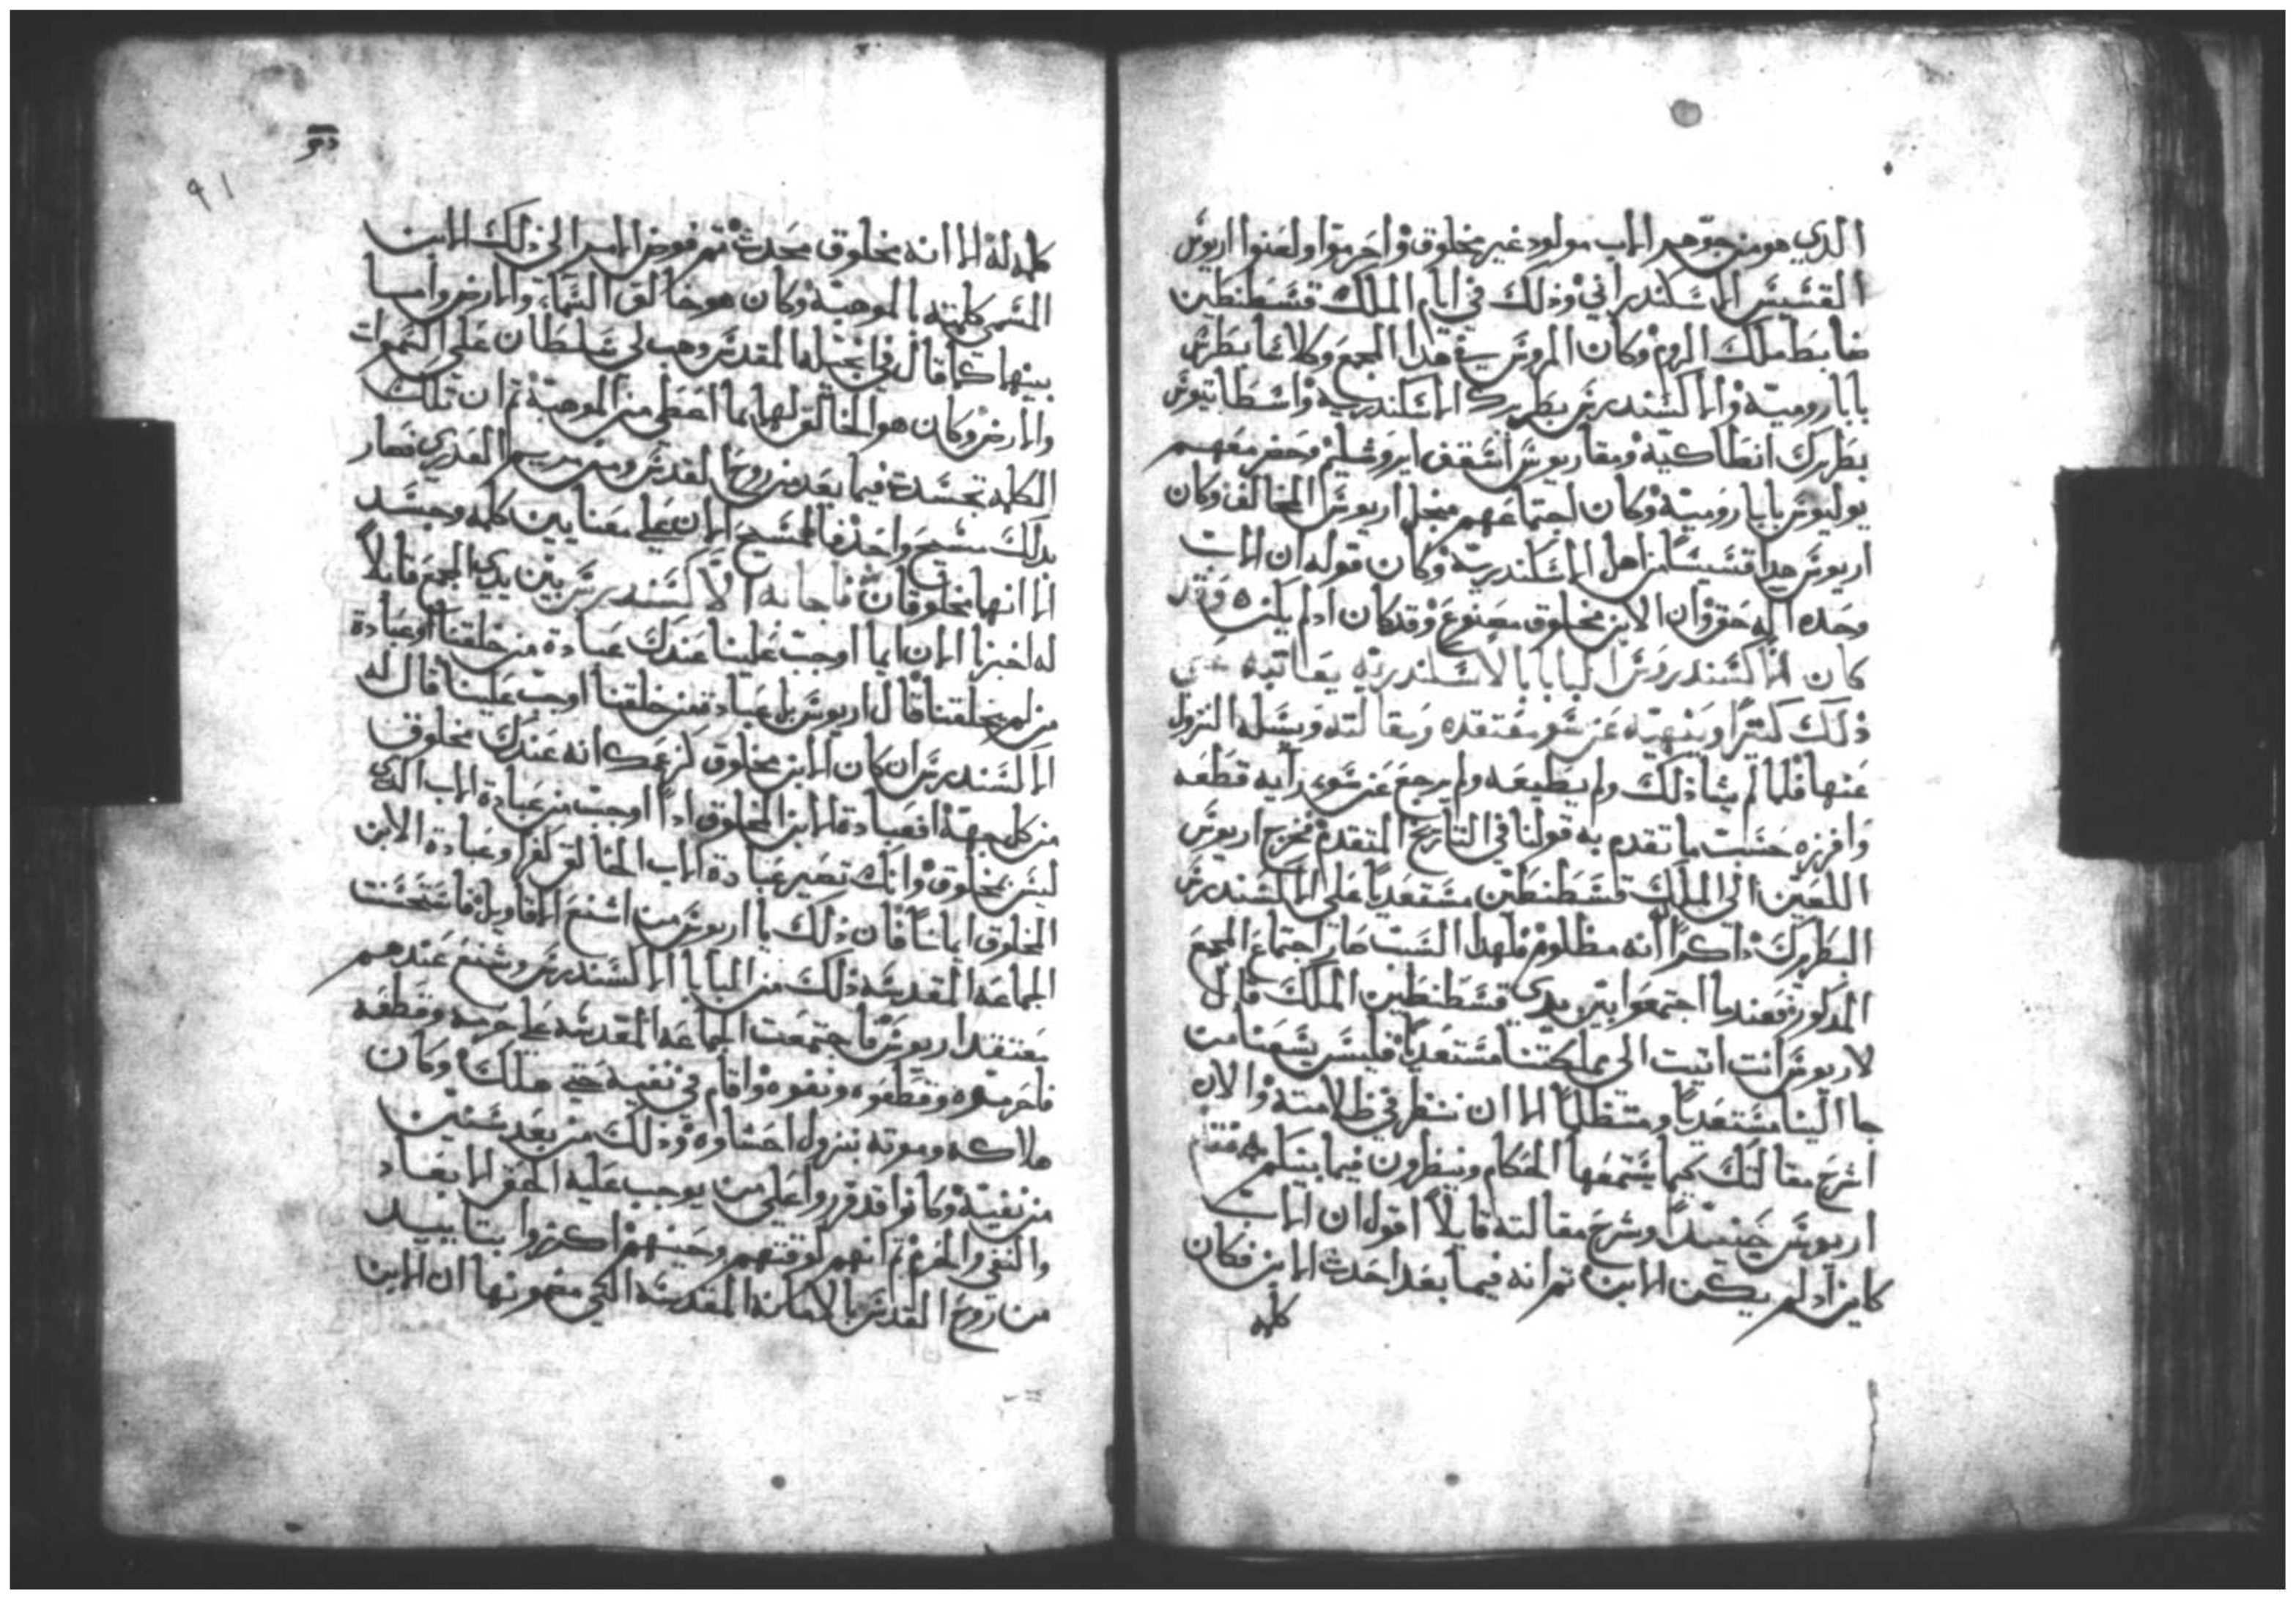 الذي هو من جوهر الاب مولود غير مخلوق واحرموا ولعنوا اريوس
القسيس الاسكندراني وذلك في ايام الملك قسطنطين
ضابط ملك الروم وكان المروس في هدا المجمع وكلاء شا بطرش
بابا رومية والاكسندرس بطريرك الاسكندرية واسطاتيوس
بطريرك انطاكية ومقاريوس اسقف ايروشليم وحضر معهم
يوليوس بابا رومية وكان اجتماعهم من اجل اريوس المخالف وكان
اريوس هدا قسيسا من اهل الاسكندرية وكان قوله ان الاب
وحده اله حق وان الابن مخلوق مصنوع وقد كان اد لم يكن وقد
كان الاكسندروس البابا بالاسكندرية يعاتبه على
ذلك كتيرا وينهيه عن سو معتقده ومقالته ويسله النزول
عنها فلما لم يشا ذلك ولم يطيعه ولم يرجع عن سو رايه قطعه
وافرزه حسب ما تقدم به قولنا في التاريخ المتقدم فخرج اريوس
اللعين الى الملك قسطنطين مستعديا على الاكسندرس
البطريرك داكرا انه مظلوم فلهدا السبب صار اجتماع المجمع
المدكور فعندما اجتمعوا بين يدي قسطنطين الملك قال
لاريوس انت اتيت الى مملكتنا مستعديا فليس يسعنا من
جا الينا مستعديا ومتظلما الا ان ننظر في ظلامته والان
اشرح مقالتك كيما يستمعها الحكام وينظرون فيما بينكم فقام
اريوس حينيدا وشرح مقالته قايلا اقول ان الاب
كاين اد لم يكن الابن تم انه فيما بعد احدث الابن فكان
كلمه
دو
٩١
كلمه له الا انه مخلوق محدث تم فوض الامر الى ذلك الابن
المسمى كلمته الموهبة وكان هو خالق السماء والارض وما
بينهما كما قال في انجيله المقدس وهب لي سلطان على السموات
والارض وكان هو الخالق لهما بما اعطي من الموهبة تم ان تلك
الكلمه تجسدت فيما بعد من روح القدس ومن مريم العدري فصار
بدلك مسيح واحد فالمسيح الان على معنايين كلمه وجسد
الا انهما مخلوقان فاجابه الاكسندرس بين يدي المجمع قايلا
له اخبرنا الان ايما اوجب علينا عندك عبادة من خلقنا او عبادة
من لم يخلقنا قال اريوس بل عبادة من خلقنا اوجب علينا قال له
الاكسندرس ان كان الابن مخلوق كزعمك انه عندك مخلوق
من كل جهة افعبادة الابن المخلوق ادا اوجب من عبادة الاب الذي
ليس بمخلوق وانك تصير عبادة الاب الخالق كفرا وعبادة الابن
المخلوق ايمانا فان ذلك يا اريوس من اشنع الاقاويل فاستحسنت
الجماعه المقدسه ذلك من البابا الاكسندرس وشنع عندهم
معتقد اريوس فاجتمعت الجماعه المقدسه على حرمه وقطعه
فاحرموه وقطعوه ونفوه واقام في نفيه حتى هلك وكان
هلاكه وموته بنزول احشاوه وذلك من بعد سنتين
من نفية وكانوا قد قرروا على من يوجب عليه الحق الابعاد
والنفي والحرم تم انهم لوقتهم وحينهم اكرزوا بتاييد
من روح القدس بالامانه المقدسه التي مضمونها ان الابن